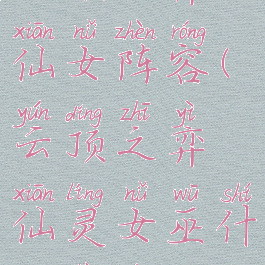 xiān nǚ zhèn róng
仙女阵容(
yún dǐng zhī yì
云顶之弈
xiān líng nǚ wū shí
仙灵女巫什